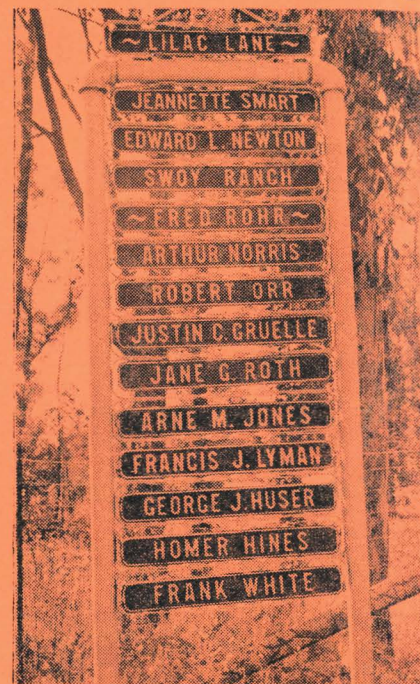 ~LILAC LANE~
JEANNETTE SMART
EDWARD L. NEWTON
SWOY RANCH
~FRED ROHR~
ARTHUR NORRIS
ROBERT ORR
JUSTIN C. GRUELLE
JANE G. ROTH
ARNE M. JONES
FRANCIS J. LYMAN
GEORGE J. HUSER
HOMER HINES
FRANK WHITE